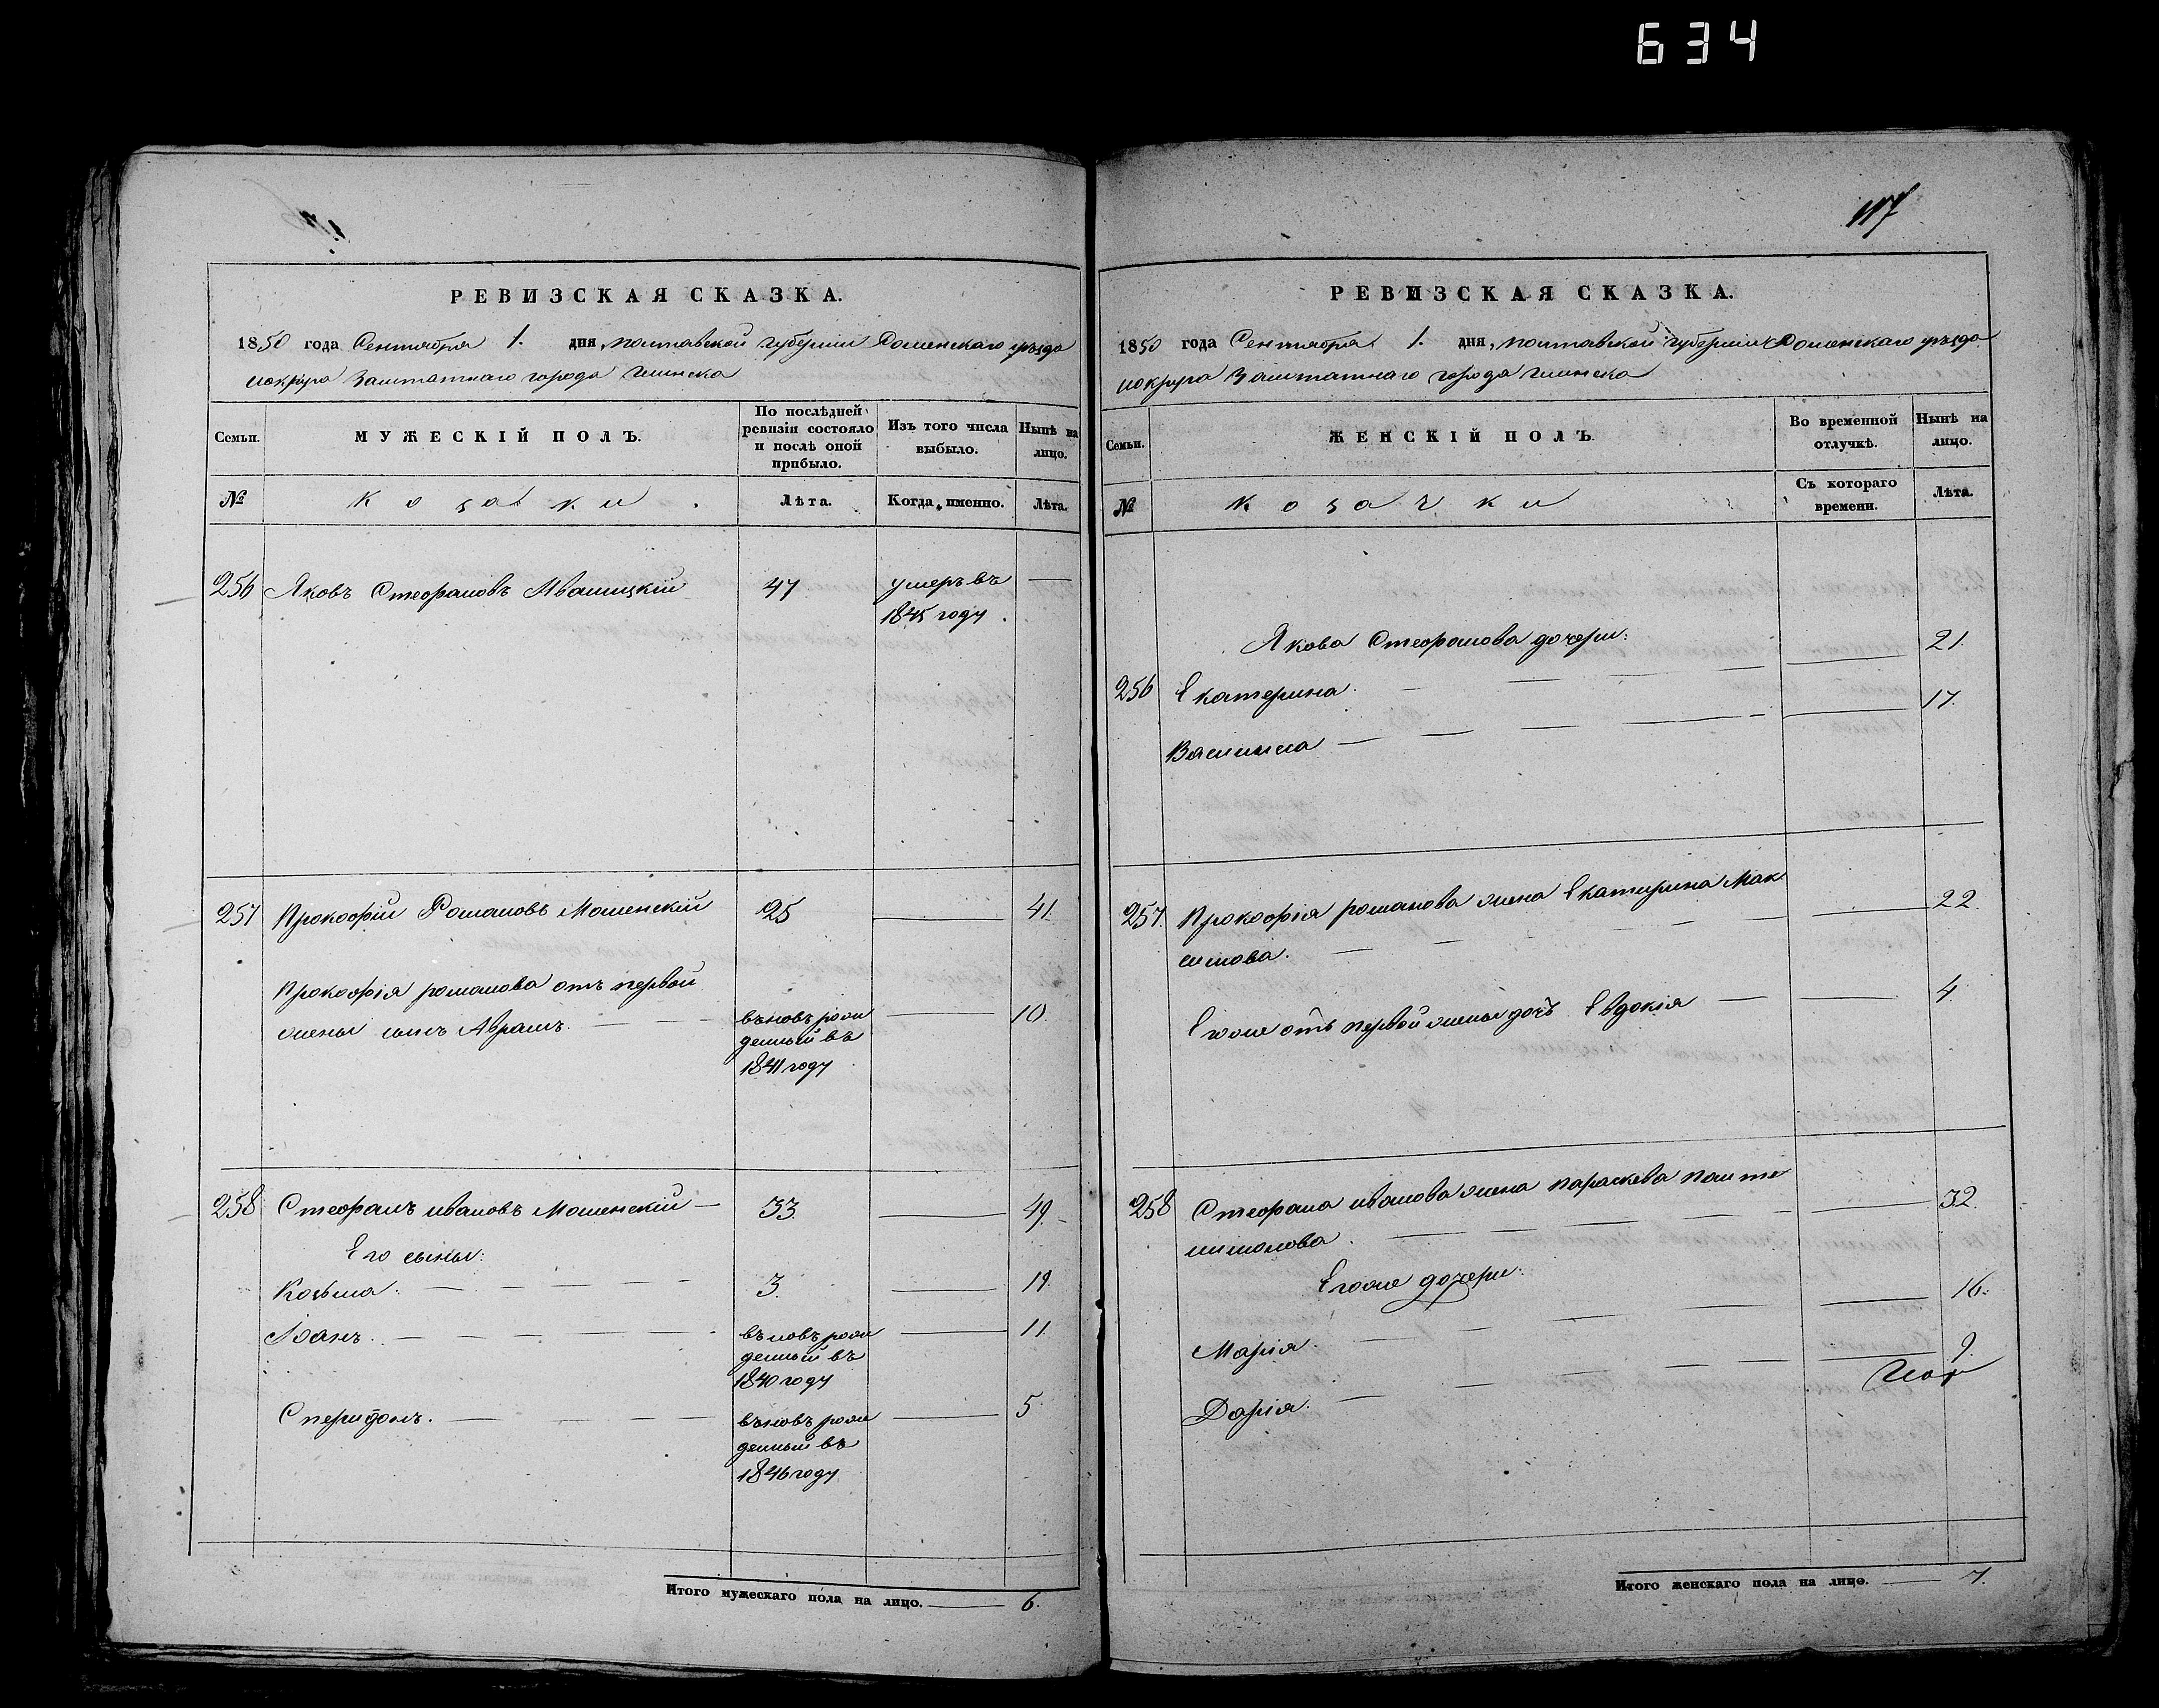 634
117
РЕВИЗСКАЯ СКАЗКА.
1850 года Сентября 1. дня, полтавской губернии Роменскаго уѣзда
иокруга Заштатнаго города Глинска
Семьи.
МУЖЕСКІЙ ПОЛЪ.
По послѣдней
ревизіи состояло
и послѣ оной
прибыло.
Изъ того числа
выбыло.
Нынѣ на
лицо.
№
Козаки.
Лѣта.
Когда именно.
Лѣта.
256 Яковъ Стефановъ 47 умеръ въ —
1845 году.
257 Прокофій Романовъ Мошенскій 25 — 41.
Прокофія романова отъ первой
жены сынъ Аврамъ. — въновь рож — 10.
денный въ
1841 году
258 Стефанъ ивановъ Мошенскій — 33. — 49.
Его сыны:
Козьма. — 3. — 19.
Іоанъ. — въновь рож — 11.
денный въ
1840 году
Сперидонъ. — въновь рож — 5.
денный въ
1846 году
Итого мужескаго пола на лицо. — 6.
РЕВИЗСКАЯ СКАЗКА.
1850 года Сентября 1. дня, полтавской губерніи Роменскаго уѣзда
иокруга Заштатнаго города Глинска
Семьи.
ЖЕНСКІЙ ПОЛЪ.
Во временной
отлучкѣ.
Нынѣ на
лицо.
№
Козачки
Съ котораго
времени.
Лѣта.
Якова Стефанова дочери:
256 Екатерина. — 21.
Василиса — 17.
257. Прокофія романова жена Екатерина Мак
симова. — 22.
Егоже отъ первой жены дочь Евдокія — 4.
258 Стефана иванова жена параскева панте
лимонова. — 32.
Егоже дочери:
Марія. — 16.
Дарія. — 9.
Итого женскаго пола на лицо. — 7.